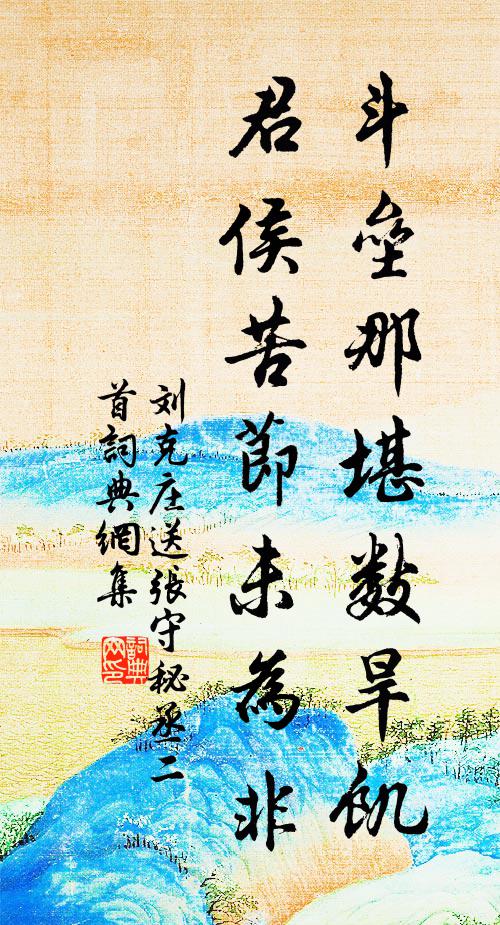 斗壘那堪數旱飢
君侯苦節未為非
刘克庄送張守秘丞二
首詞典網集
詞典